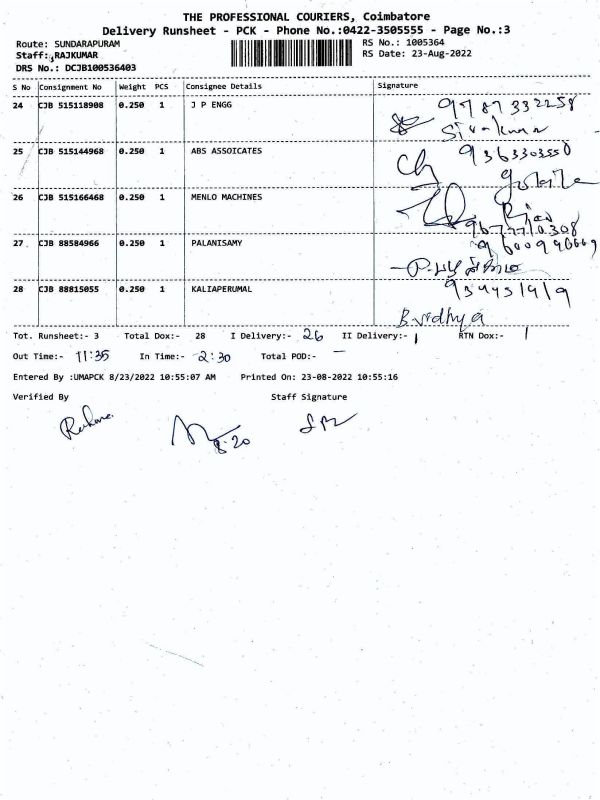 THE PROFESSIONAL COURIERS, Coimbatore
Delivery Runsheet - PCK - Phone No.:0422-3505555 - Page No.:3
Route: SUNDARAPURAM
RS No.: 1005364
Staff: RAJKUMAR
RS Date: 23-Aug-2022
DRS No.: DCJB100536403
S No Consignment No Weight PCS Consignee Details Signature
24 CJB 515118908 0.250 1 J P ENGG 9787332258
Sivakumar
25 CJB 515144968 0.250 1 ABS ASSOICATES 9363303550
26 CJB 515166468 0.250 1 MENLO MACHINES
9677710308
27 CJB 88584966 0.250 1 PALANISAMY
28 CJB 88815055 0.250 1 KALIAPERUMAL
B.vidhya
Tot. Runsheet:- 3 Total Dox:- 28 I Delivery:- 26 II Delivery:- 1 RTN Dox:- 1
Out Time:- 11:35 In Time:- 2:30 Total POD:- —
Entered By :UMAPCK 8/23/2022 10:55:07 AM Printed On: 23-08-2022 10:55:16
Verified By Staff Signature
8.20